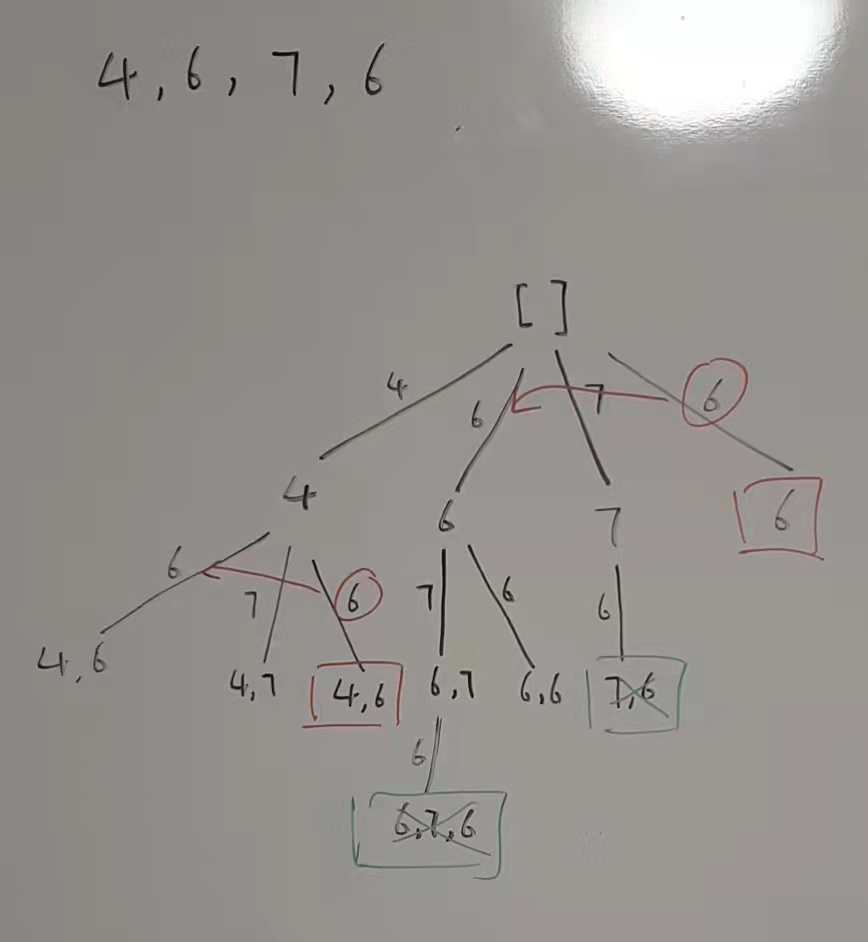 4, 6, 7, 6
[ ]
4 6 7 6
4 6 7 6
6 7 6 7 6 6
4,6 4,7 4,6 6,7 6,6 7,6
6
6,7,6